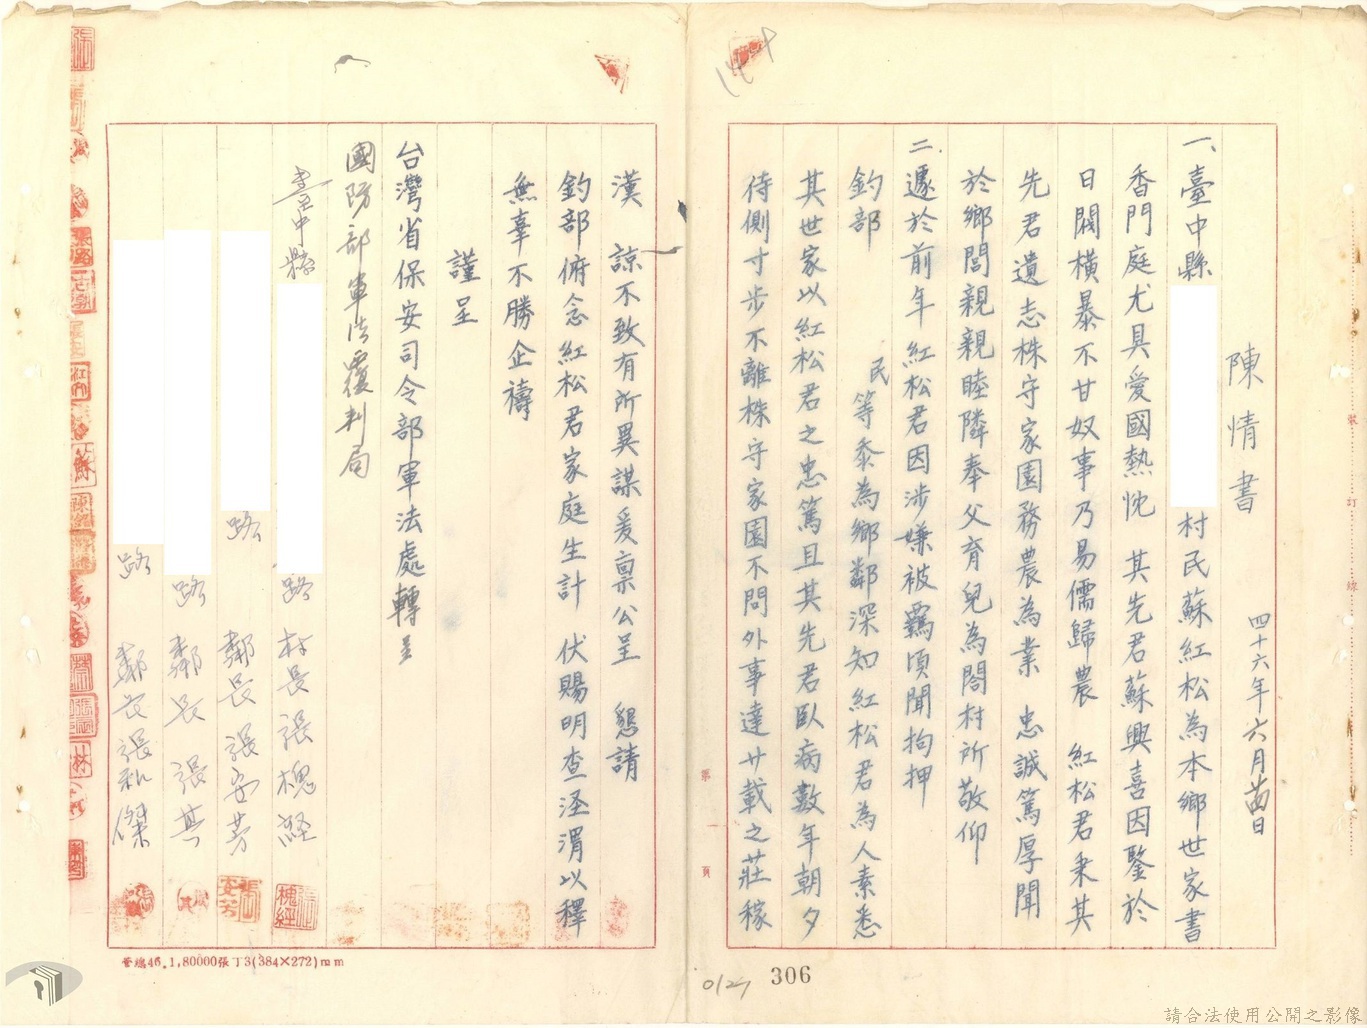 陳情書
四十六年六月廿四日
一、臺中縣 村民蘇紅松為本鄉世家書
香門庭尤具愛國熱忱 其先君蘇興喜因鑒於
日閥橫暴不甘奴事乃易儒歸農 紅松君秉其
先君遺志株守家園務農為業 忠誠篤厚聞
於鄉閭親親睦隣奉父育兒為閤村所敬仰
二、遽於前年紅松君因涉嫌被羈頃聞拘押
鈞部 民等忝為鄉鄰深知紅松君為人素悉
其世家以紅松君之忠篤且其先君臥病數年朝夕
待側寸步不離株守家園不問外事達廿載之莊稼
漢 諒不致有所異謀爰稟公呈 懇請
鈞部俯念紅松君家庭生計 伏賜明查涇渭以釋
無辜不勝企禱
謹呈
台灣省保安司令部軍法處轉呈
國防部軍法覆判局
臺中縣 路 村長張槐經
路 鄰長張安芳
路 鄰長 張其
路 鄰長張和傑
張槐經
張安芳
第一頁
裝訂線
管總46.1,80000張丁3(384×272)mm
306
0127
請合法使用公開之影像